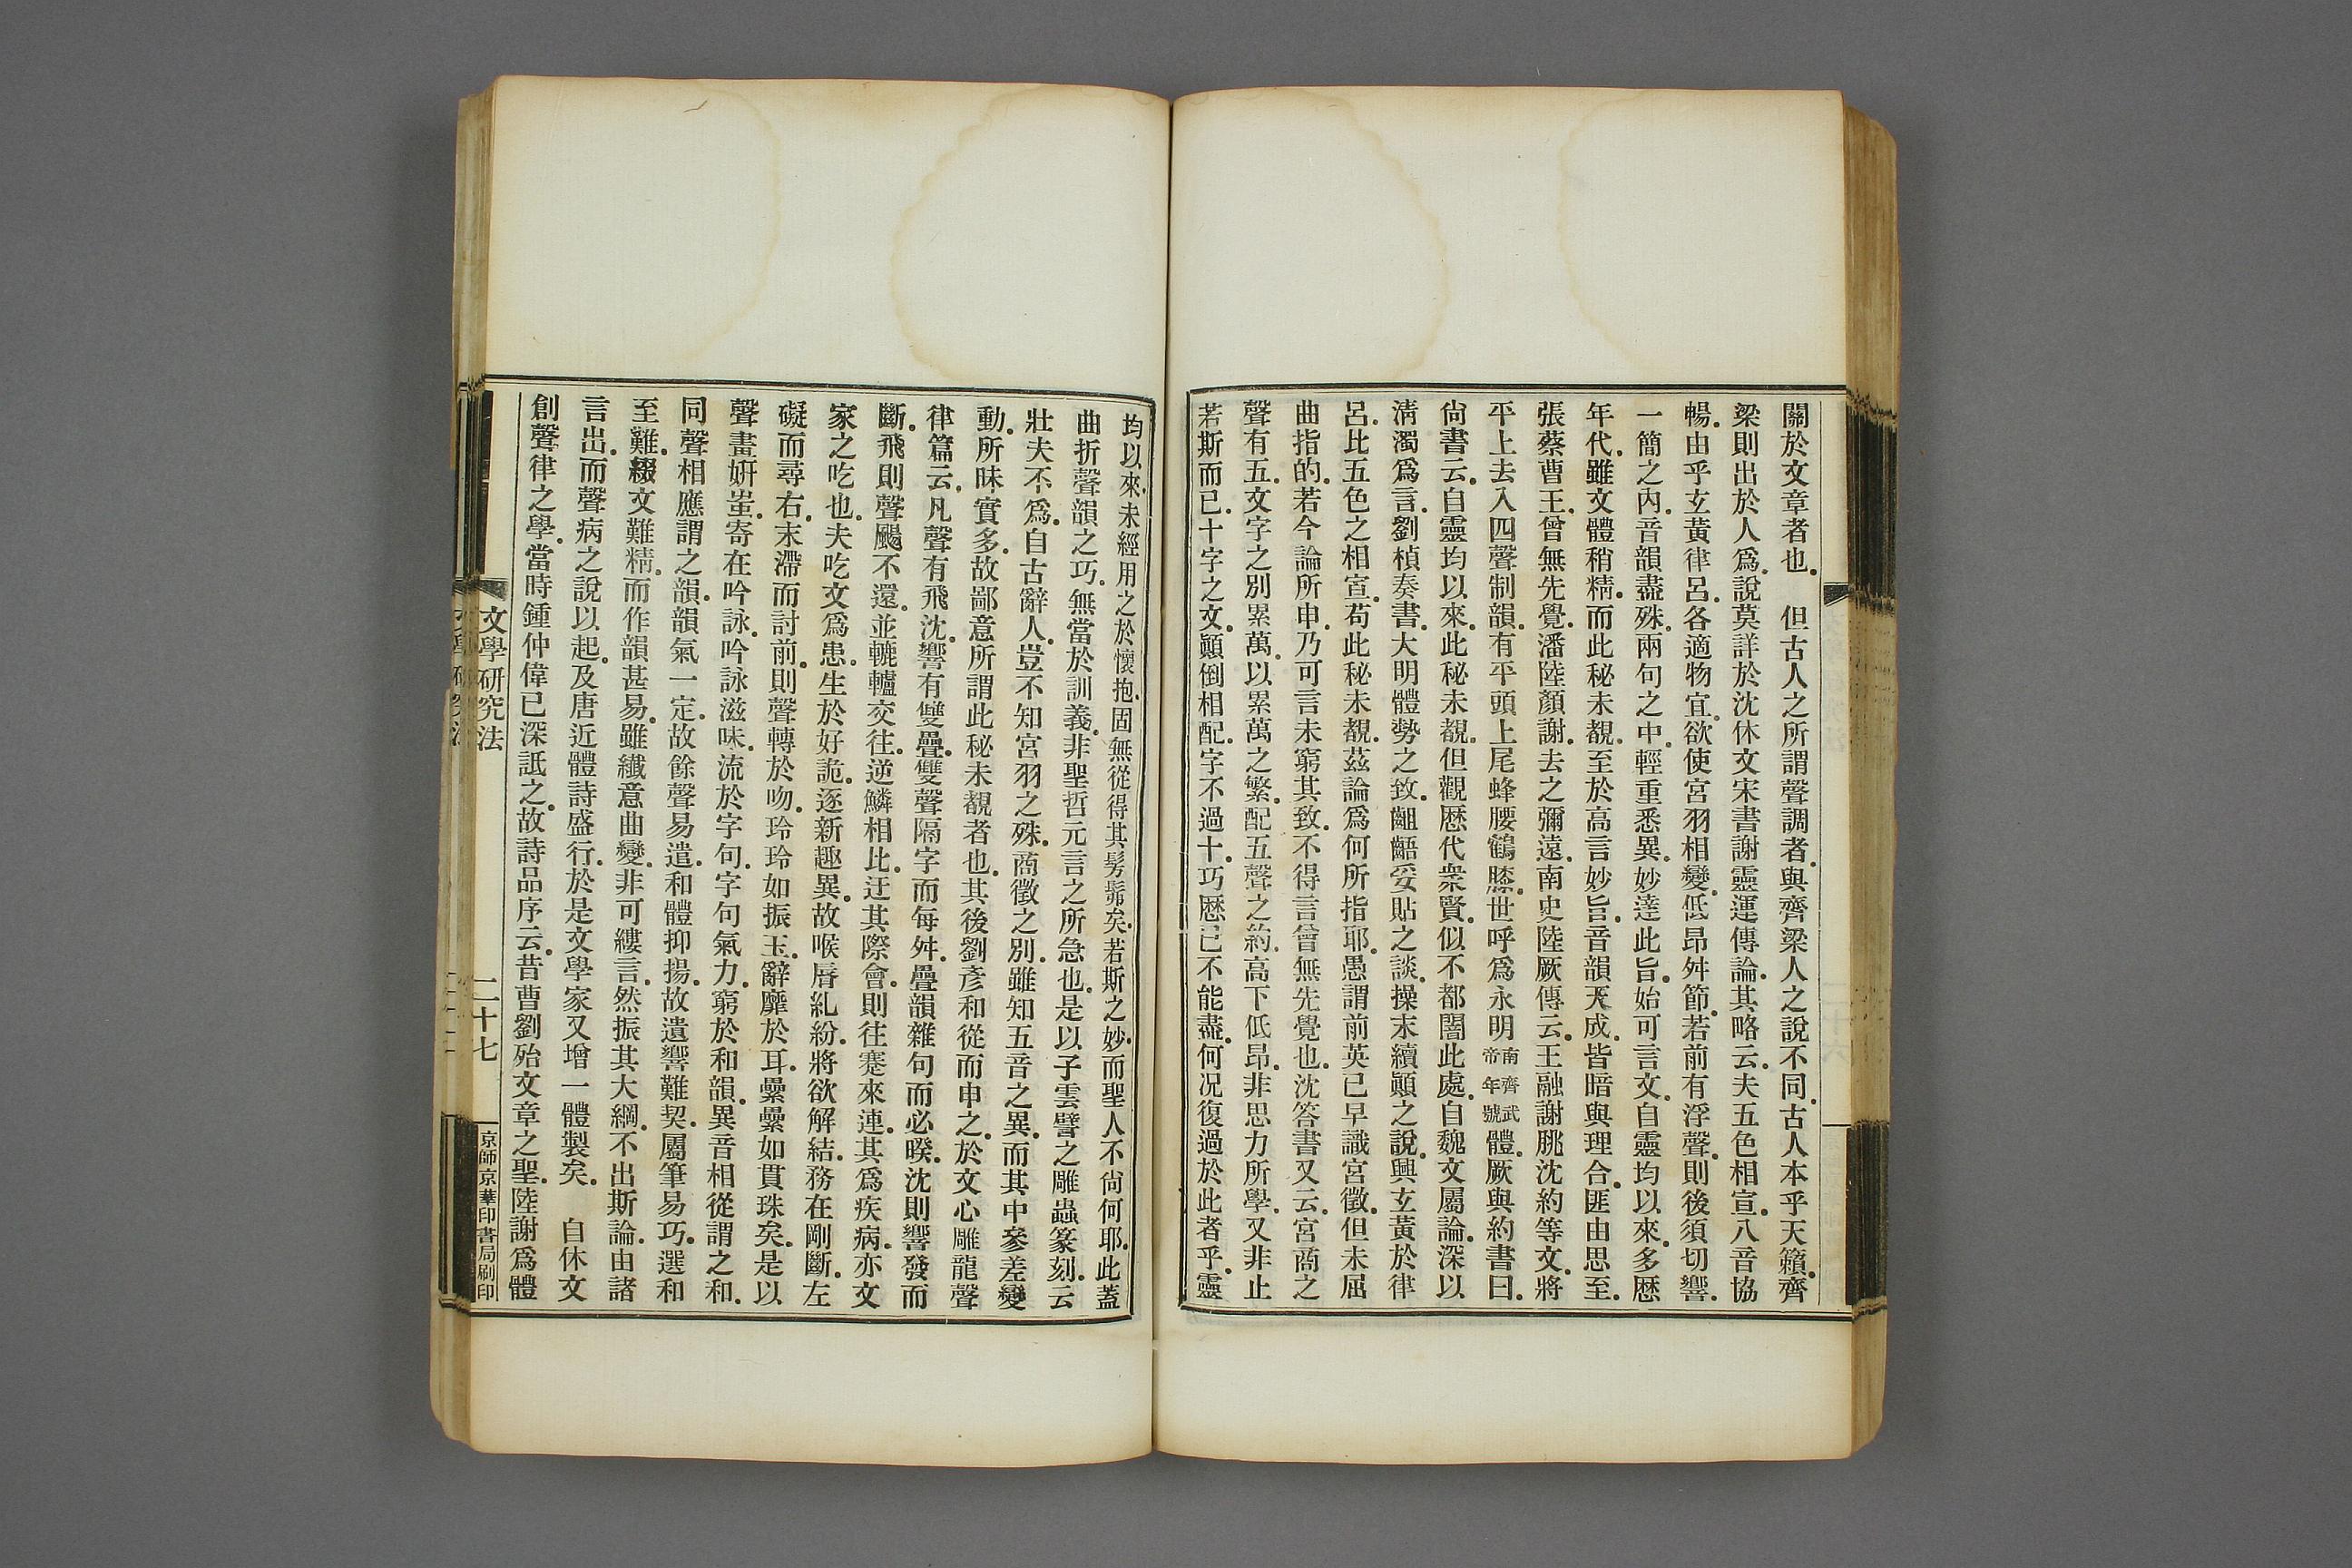 關於文章者也。　但古人之所謂聲調者。與齊梁人之說不同。古人本乎天籟。齊
梁則出於人爲。說莫詳於沈休文宋書謝靈運傳論。其略云。夫五色相宣。八音協
暢。由乎玄黃律呂。各適物宜。欲使宮羽相變。低昂舛節。若前有浮聲。則後須切響。
一簡之內。音韻盡殊。兩句之中。輕重悉異。妙達此旨。始可言文。自靈均以來。多歷
年代。雖文體稍精。而此秘未覩。至於高言妙旨。音韻天成。皆暗與理合。匪由思至。
張蔡曹王。曾無先覺。潘陸顏謝。去之彌遠。南史陸厥傳云。王融謝朓沈約等文。將
平上去入四聲制韻。有平頭上尾蜂腰鶴膝。世呼爲永明南齊武帝年號體。厥與約書曰。
尙書云。自靈均以來。此秘未覩。但觀歷代衆賢。似不都闇此處。自魏文屬論。深以
清濁爲言。劉楨奏書。大明體勢之致。齟齬妥貼之談。操末續顚之說。興玄黃於律
呂。比五色之相宣。苟此秘未覩。茲論爲何所指耶。愚謂前英已早識宮徵。但未屈
曲指的。若今論所申。乃可言未窮其致。不得言曾無先覺也。沈答書又云。宮商之
聲有五。文字之別累萬。以累萬之繁。配五聲之約。高下低昂。非思力所學。又非止
若斯而已。十字之文。顚倒相配。字不過十。巧歷已不能盡。何況復過於此者乎。靈
均以來。未經用之於懷抱。固無從得其髣髴矣。若斯之妙。而聖人不尙何耶。此蓋
曲折聲韻之巧。無當於訓義。非聖哲元言之所急也。是以子雲譬之雕蟲篆刻。云
壯夫不爲。自古辭人。豈不知宮羽之殊。商徵之別。雖知五音之異。而其中參差變
動。所昧實多。故鄙意所謂此秘未覩者也。其後劉彥和從而申之。於文心雕龍聲
律篇云。凡聲有飛沈。響有雙疊。雙聲隔字而每舛。疊韻雜句而必暌。沈則響發而
斷。飛則聲颺不還。並轆轤交往。逆鱗相比。迂其際會。則往蹇來連。其爲疾病。亦文
家之吃也。夫吃文爲患。生於好詭。逐新趣異。故喉脣糺紛。將欲解結。務在剛斷。左
礙而尋右。末滯而討前。則聲轉於吻。玲玲如振玉。辭靡於耳。纍纍如貫珠矣。是以
聲畫姸蚩。寄在吟詠。吟詠滋味。流於字句。字句氣力。窮於和韻。異音相從謂之和。
同聲相應謂之韻。韻氣一定。故餘聲易遣。和體抑揚。故遺響難契。屬筆易巧。選和
至難。綴文難精。而作韻甚易。雖纖意曲變。非可縷言。然振其大綱。不出斯論。由諸
言出。而聲病之說以起。及唐近體詩盛行。於是文學家又增一體製矣。　自休文
創聲律之學。當時鍾仲偉已深詆之。故詩品序云。昔曹劉殆文章之聖。陸謝爲體
文學研究法
二十七
京師京華印書局刷印